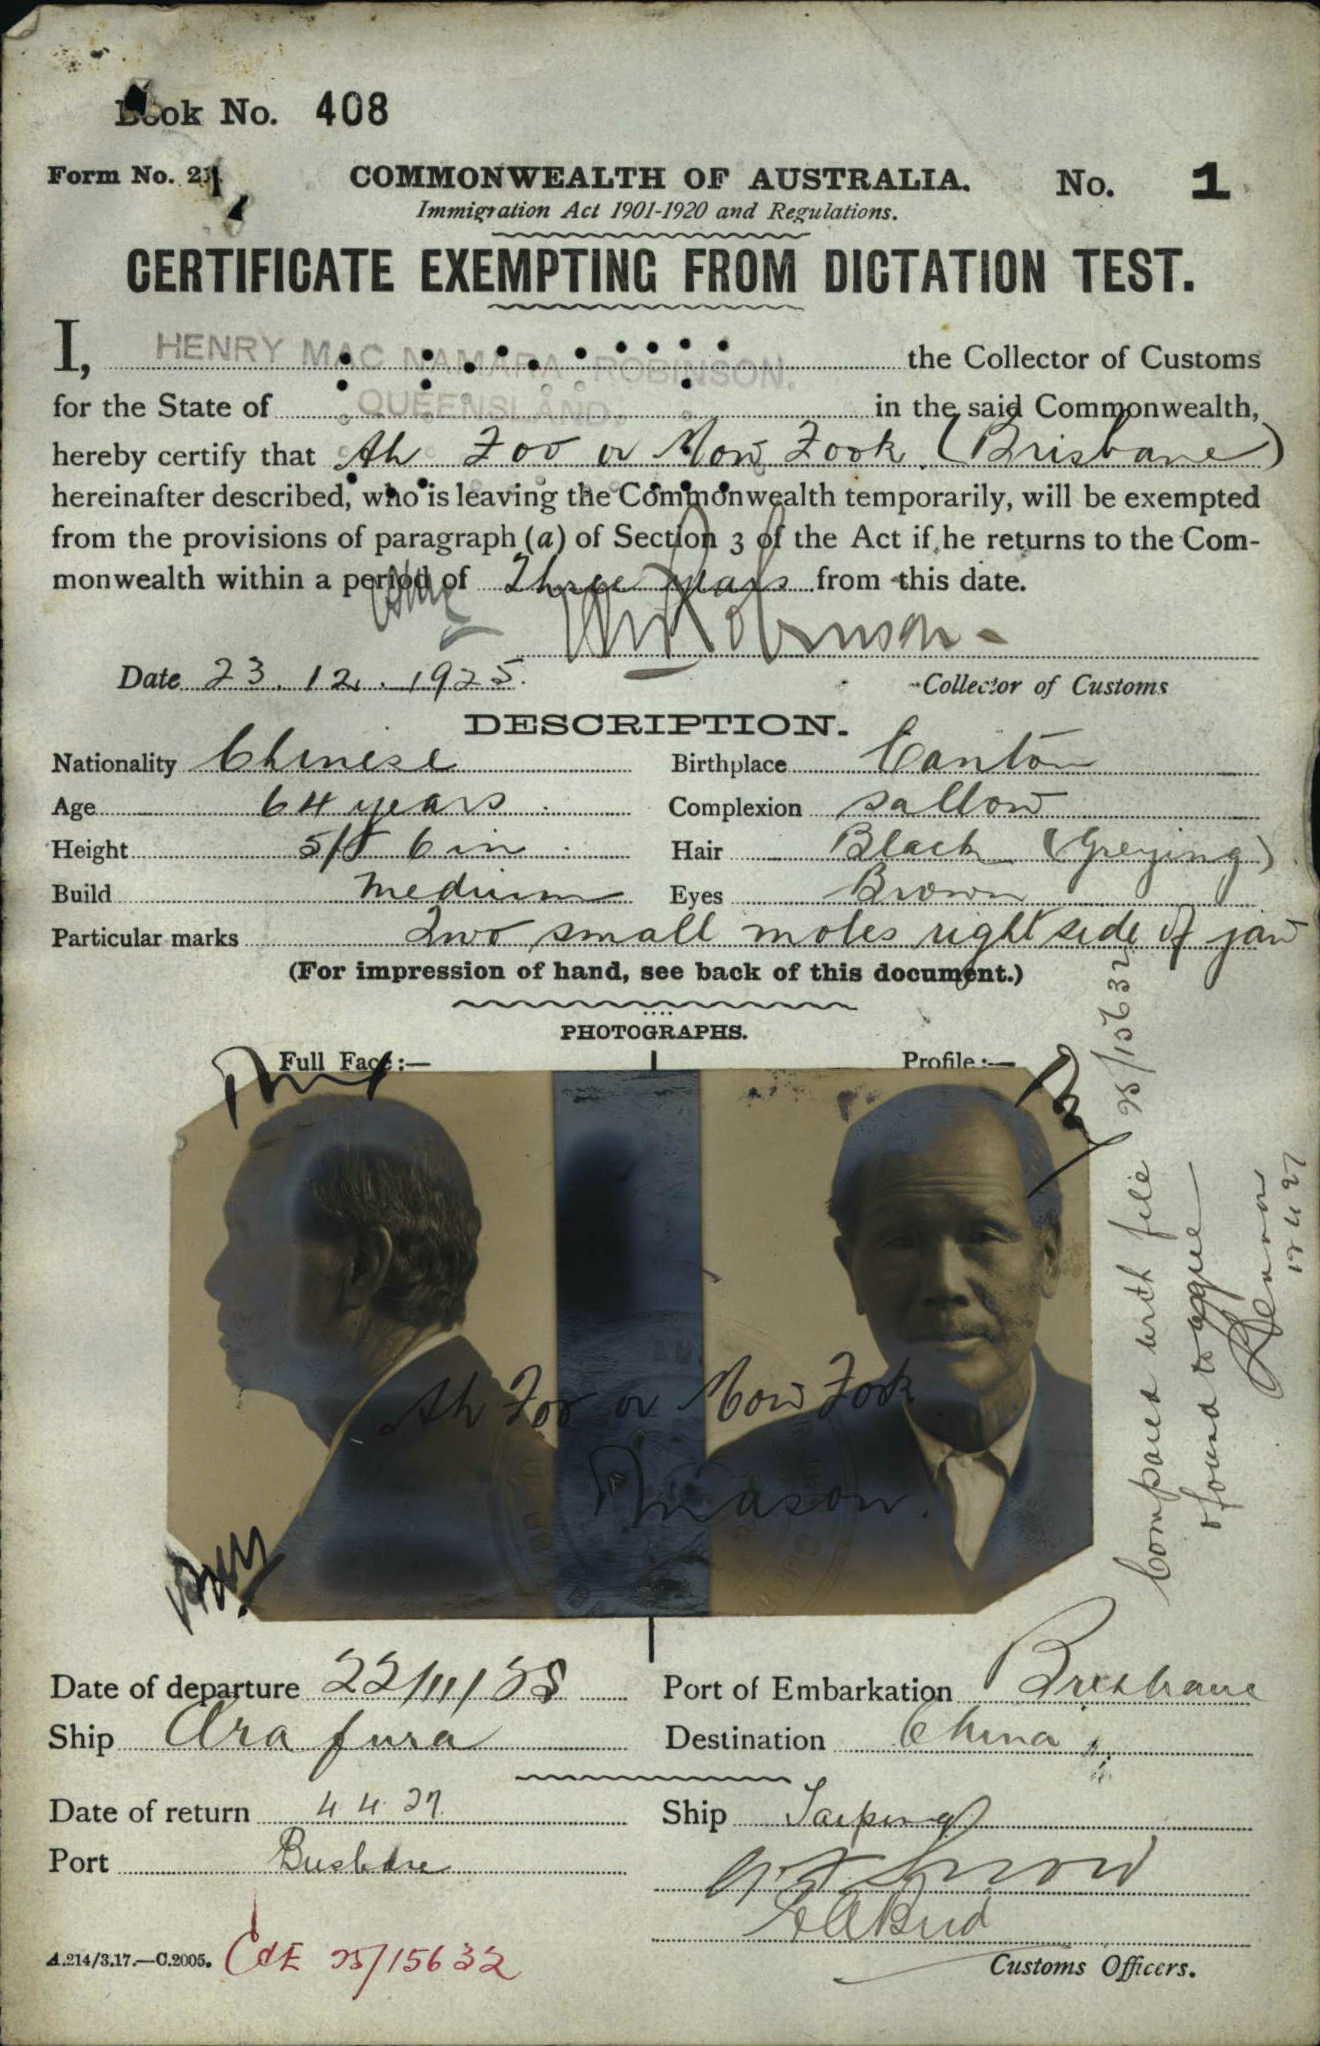 Book No. 408
Form No. 21. COMMONWEALTH OF AUSTRALIA. No. 1
Immigration Act 1901-1920 and Regulations.
CERTIFICATE EXEMPTING FROM DICTATION TEST.
I, HENRY MAC NAMARA ROBINSON. the Collector of Customs
for the State of QUEENSLAND. in the said Commonwealth,
hereby certify that Ah Foo or Mow Fook (Brisbane)
hereinafter described, who is leaving the Commonwealth temporarily, will be exempted
from the provisions of paragraph (a) of Section 3 of the Act if he returns to the Com-
monwealth within a period of Three years from this date.
Robinson
Date 23.12.1925. Collector of Customs
DESCRIPTION.
Nationality Chinese Birthplace Canton
Age 64 years Complexion sallow
Height 5ft 6 in Hair Black (Greying)
Build Medium Eyes Brown
Particular marks Two small moles right side of jaw
(For impression of hand, see back of this document.)
PHOTOGRAPHS.
Full Face:— Profile:—
Ah Foo or Mow Fook
Mason.
Compared with file 25/15632
& found to agree
12 4 27
Date of departure 22/11/25 Port of Embarkation Brisbane
Ship Arafura Destination China
Date of return 4 4 27 Ship Taiping
Port Brisbane
Customs Officers.
A.214/3.17.—C.2005. C&E 25/15632